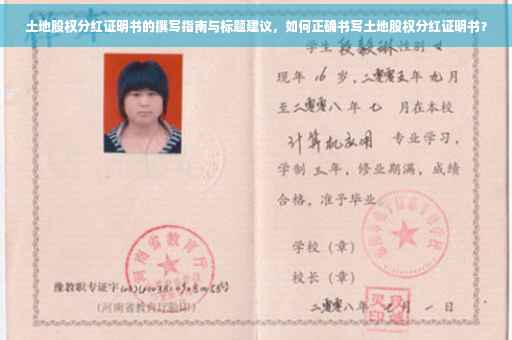 土地股权分红证明书的撰写指南与标题建议，如何正确书写土地股权分红证明书？
学生段毅琳性别女
现年16岁，二零零五年九月
至二零零八年七月在本校
计算机应用 专业学习，
学制三年，修业期满，成绩
合格，准予毕业
学校（章）
校长（章）
二零零八年七月一日
河南省教育厅
豫教职专证字
（河南省教育厅验印）